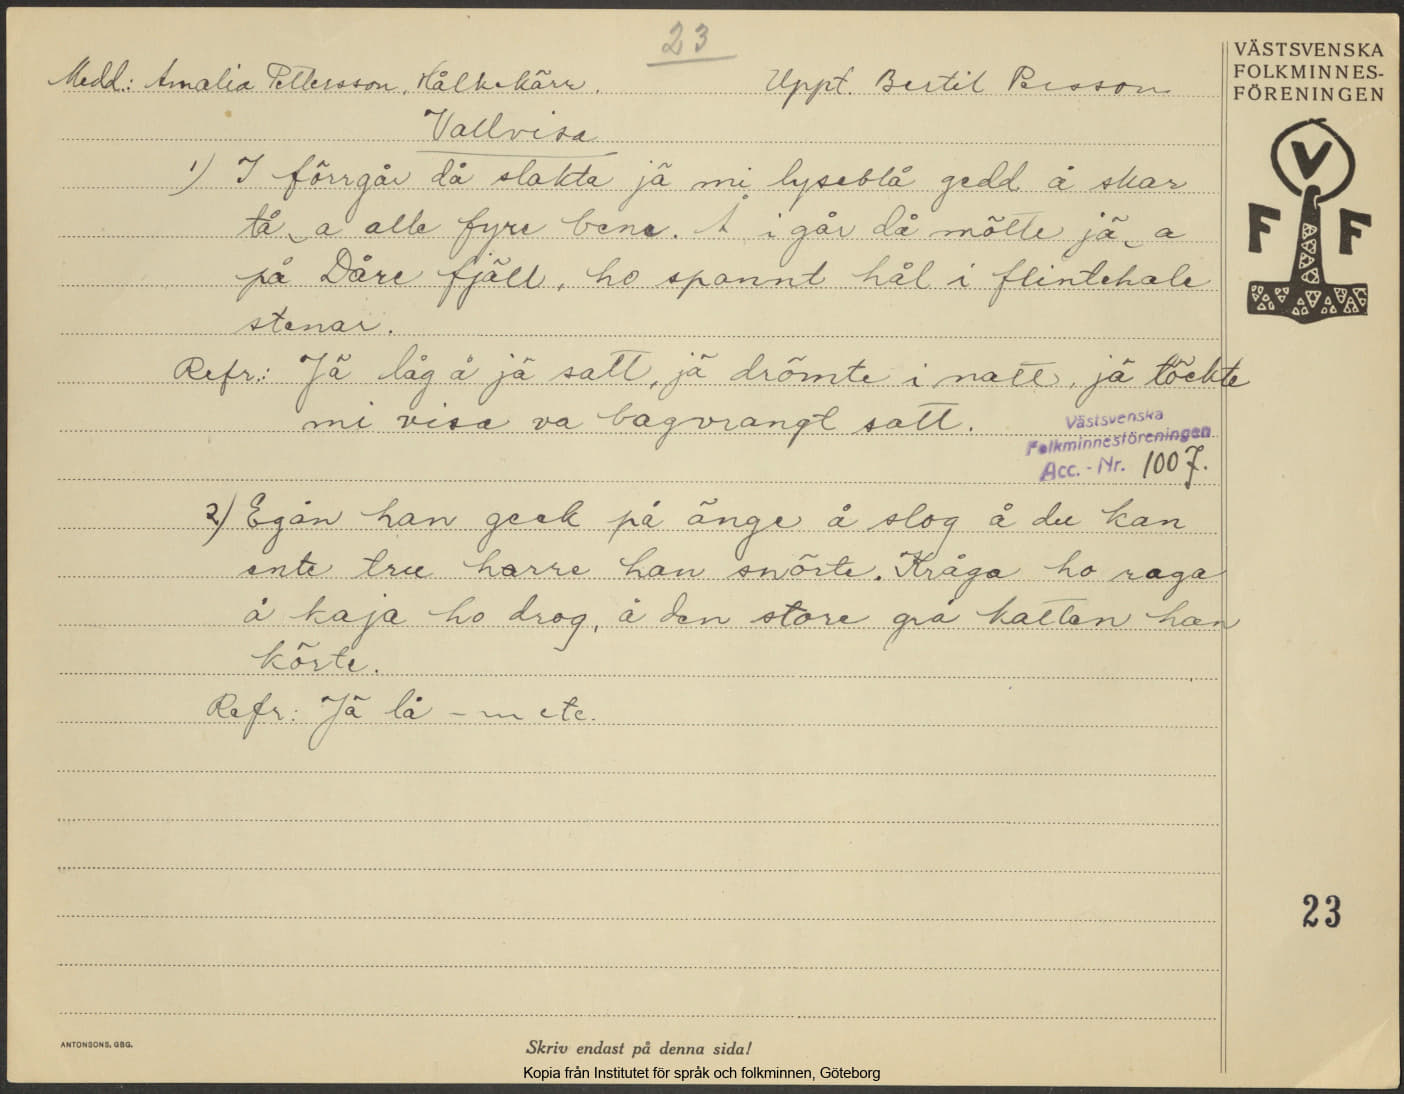 23
Medd.: Amalia Pettersson, Hålkekärr. Uppt. Bertil Persson
VÄSTSVENSKA
FOLKMINNES-
FÖRENINGEN
V
F F
Vallvisa
1) I förrgår då slakta jä mi lyseblå gedd å skar
tå a alle fyre bene. Å i går då mötte jä a
på Dåre fjäll, ho spannt hål i flintehale
stenar.
Refr.: Jä låg å jä satt, jä drömte i natt, jä töckte
mi visa va bagvrangt satt.
Västsvenska
Folkminnesföreningen
Acc. - Nr. 1007.
2) Egån han geek på änge å slog å du kan
ente tru harre han snörte. Kråga ho raga
å kaja ho drog, å den store grå katten han
körte.
Refr: Jä lå - m etc.
23
ANTONSONS, GBG.
Skriv endast på denna sida!
Kopia från Institutet för språk och folkminnen, Göteborg